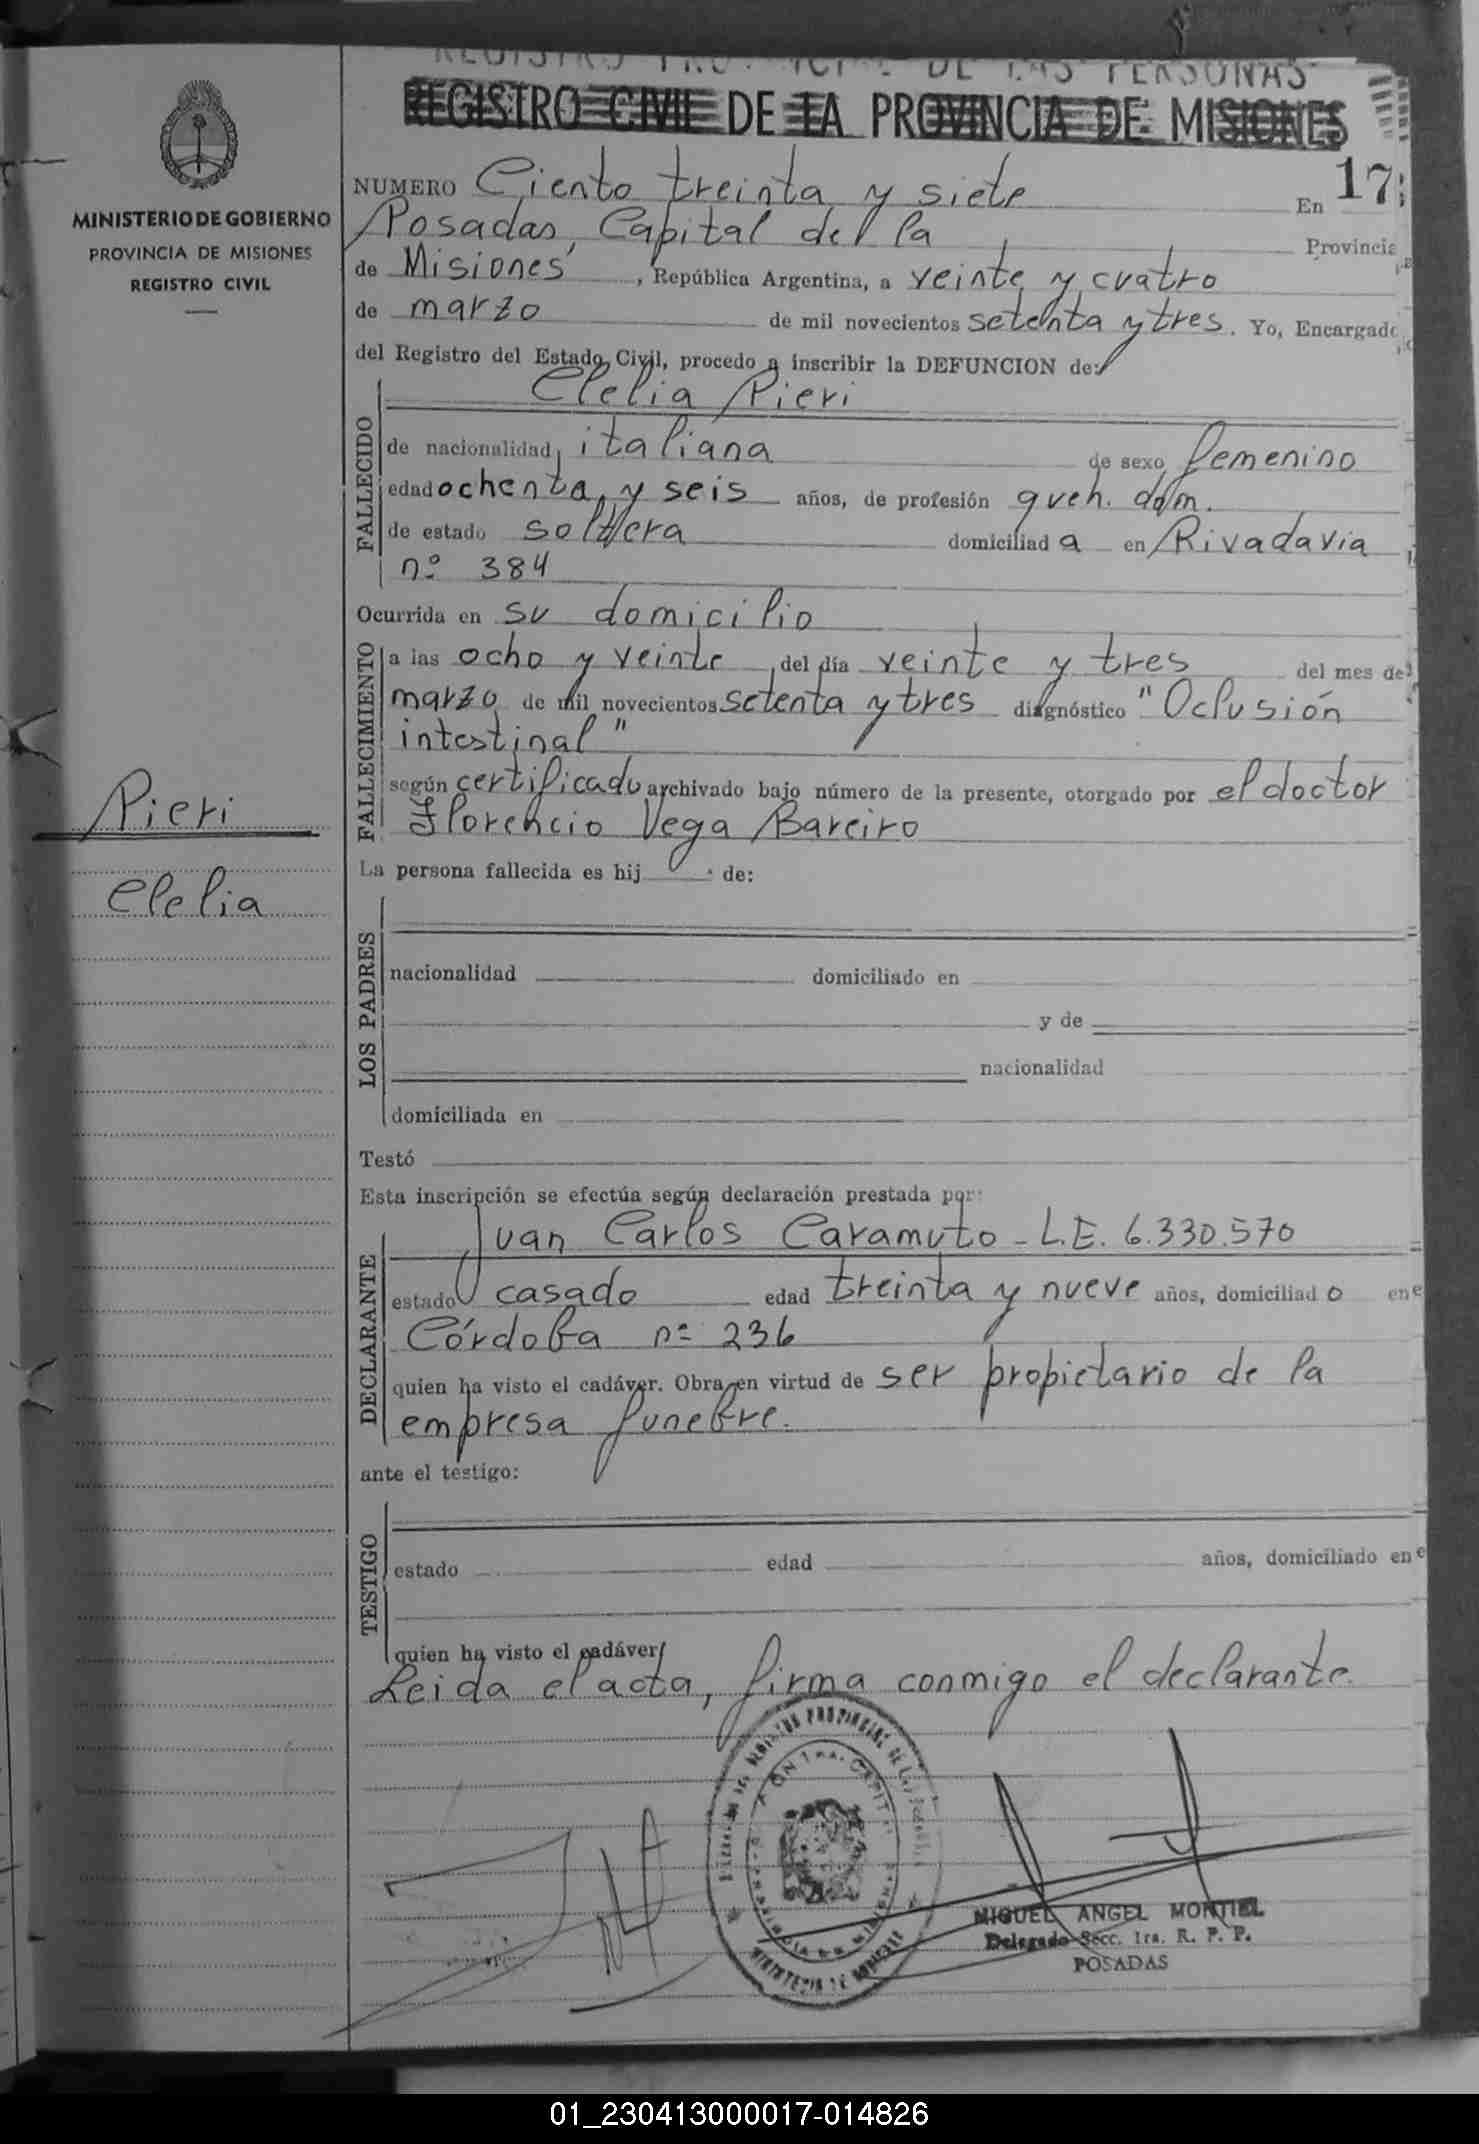 REGISTRO PROVINCIAL DE LAS PERSONAS
REGISTRO CIVIL DE LA PROVINCIA DE MISIONES
MINISTERIO DE GOBIERNO
PROVINCIA DE MISIONES
REGISTRO CIVIL
NUMERO Ciento treinta y siete En 17
Posadas, Capital del la Provincia
de Misiones, República Argentina, a veinte y cuatro
de marzo de mil novecientos setenta y tres. Yo, Encargado
del Registro del Estado Civil, procedo a inscribir la DEFUNCION de:
Clelia Pieri
FALLECIDO
de nacionalidad italiana de sexo femenino
edad ochenta y seis años, de profesión queh. dom.
de estado soltera domiciliad a en Rivadavia
nº 384
Ocurrida en su domicilio
FALLECIMIENTO
a las ocho y veinte del día veinte y tres del mes de
marzo de mil novecientos setenta y tres diagnóstico "Oclusión
intestinal"
según certificado archivado bajo número de la presente, otorgado por el doctor
Florencio Vega Bareiro
Pieri
Clelia
La persona fallecida es hij de:
LOS PADRES
nacionalidad domiciliado en
y de
nacionalidad
domiciliada en
Testó
Esta inscripción se efectúa según declaración prestada por:
DECLARANTE
Juan Carlos Caramuto - L.E. 6.330.570
estado casado edad treinta y nueve años, domiciliad o en
Córdoba nº 236
quien ha visto el cadáver. Obra en virtud de ser propietario de la
empresa funebre.
ante el testigo:
TESTIGO
estado edad años, domiciliado en
quien ha visto el cadáver
Leida el acta, firma conmigo el declarante.
MIGUEL ANGEL MONTIEL
Delegado Secc. 1ra. R. P. P.
POSADAS
01_230413000017-014826